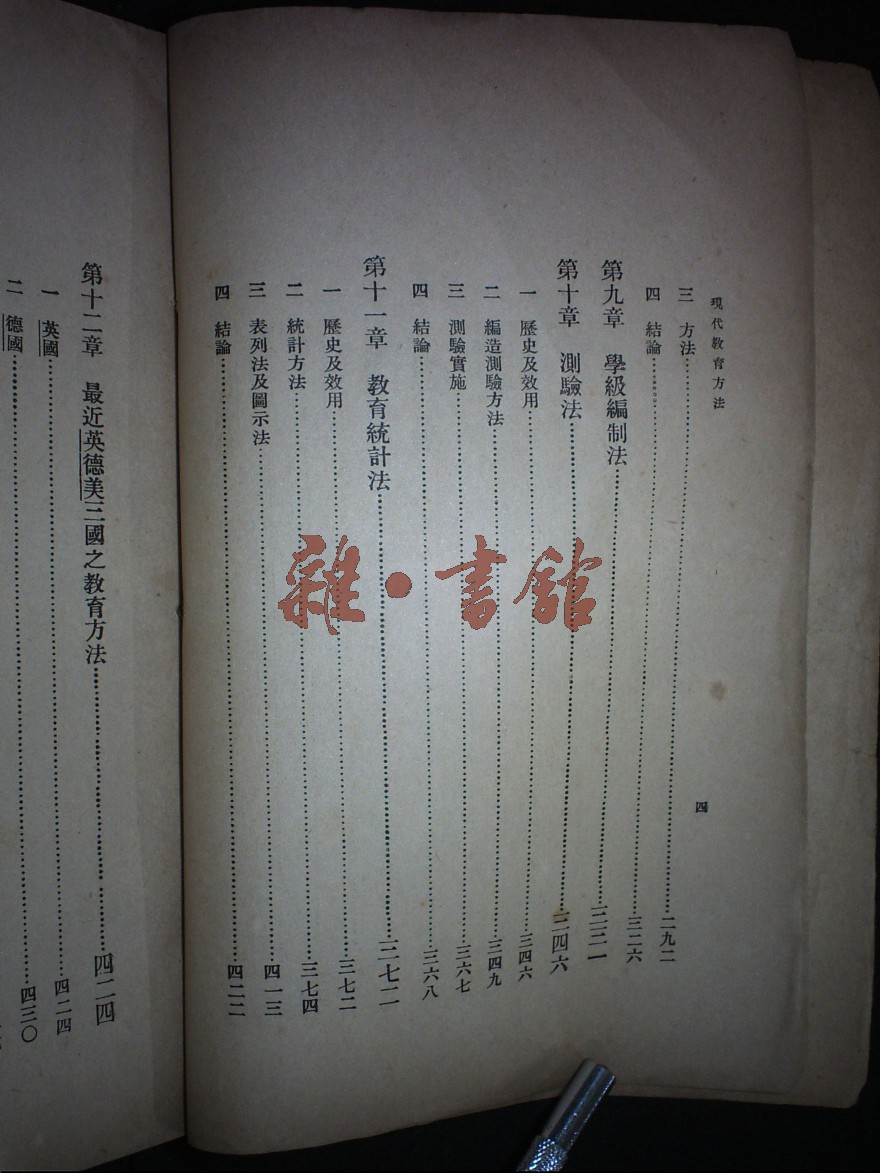 現代教育方法
四
三 方法……二九二
四 結論……三二六
第九章 學級編制法……三三一
第十章 測驗法……三四六
一 歷史及效用……三四六
二 編造測驗方法……三四九
三 測驗實施……三六七
四 結論……三六八
第十一章 教育統計法……三七二
一 歷史及效用……三七二
二 統計方法……三七四
三 表列法及圖示法……四一三
四 結論……四二二
第十二章 最近英德美三國之教育方法……四二四
一 英國……四二四
二 德國……四三〇
雜·書館